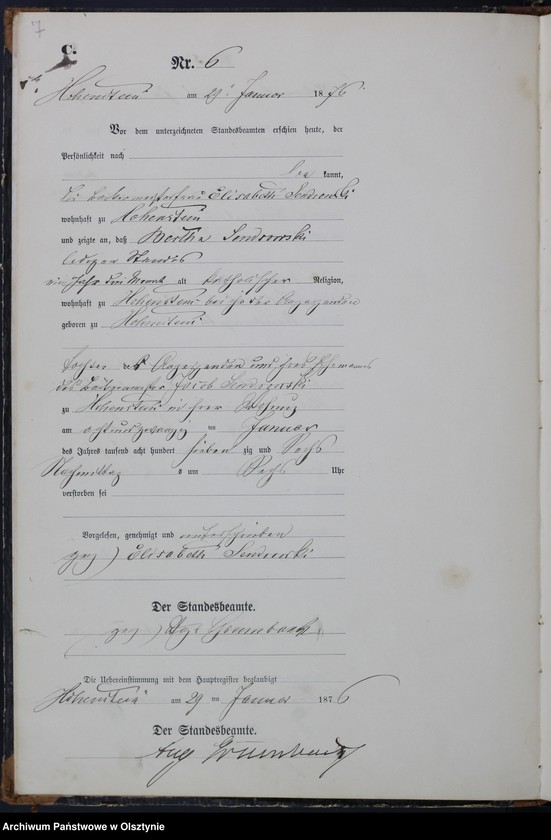 7
C.
Nr. 6
Hohenstein am 29 Januar 1876
Vor dem unterzeichneten Standesbeamten erschien heute, der
Persönlichkeit nach
kannt,
Elisabeth Sendrowski
wohnhaft zu Hohenstein
und zeigte an, daß Bertha Sendrowski
ledigen Standes
ein Jahr drei Monat alt katholischer Religion,
wohnhaft zu Hohenstein bei
geboren zu Hohenstein
Tochter der Anzeigenden und ihres Ehemannes
des Jacob Sendrowski
zu Hohenstein in ihrer Wohnung
am achtundzwanzig ten Januar
des Jahres tausend acht hundert sieben zig und Sechs
Nachmittag s um Sechs Uhr
verstorben sei
Vorgelesen, genehmigt und unterschrieben
gez) Elisabeth Sendrowski
Der Standesbeamte.
gez) Aug Grunenbach
Die Uebereinstimmung mit dem Hauptregister beglaubigt
Hohenstein am 29 ten Januar 1876
Der Standesbeamte.
Aug
Archiwum Państwowe w Olsztynie